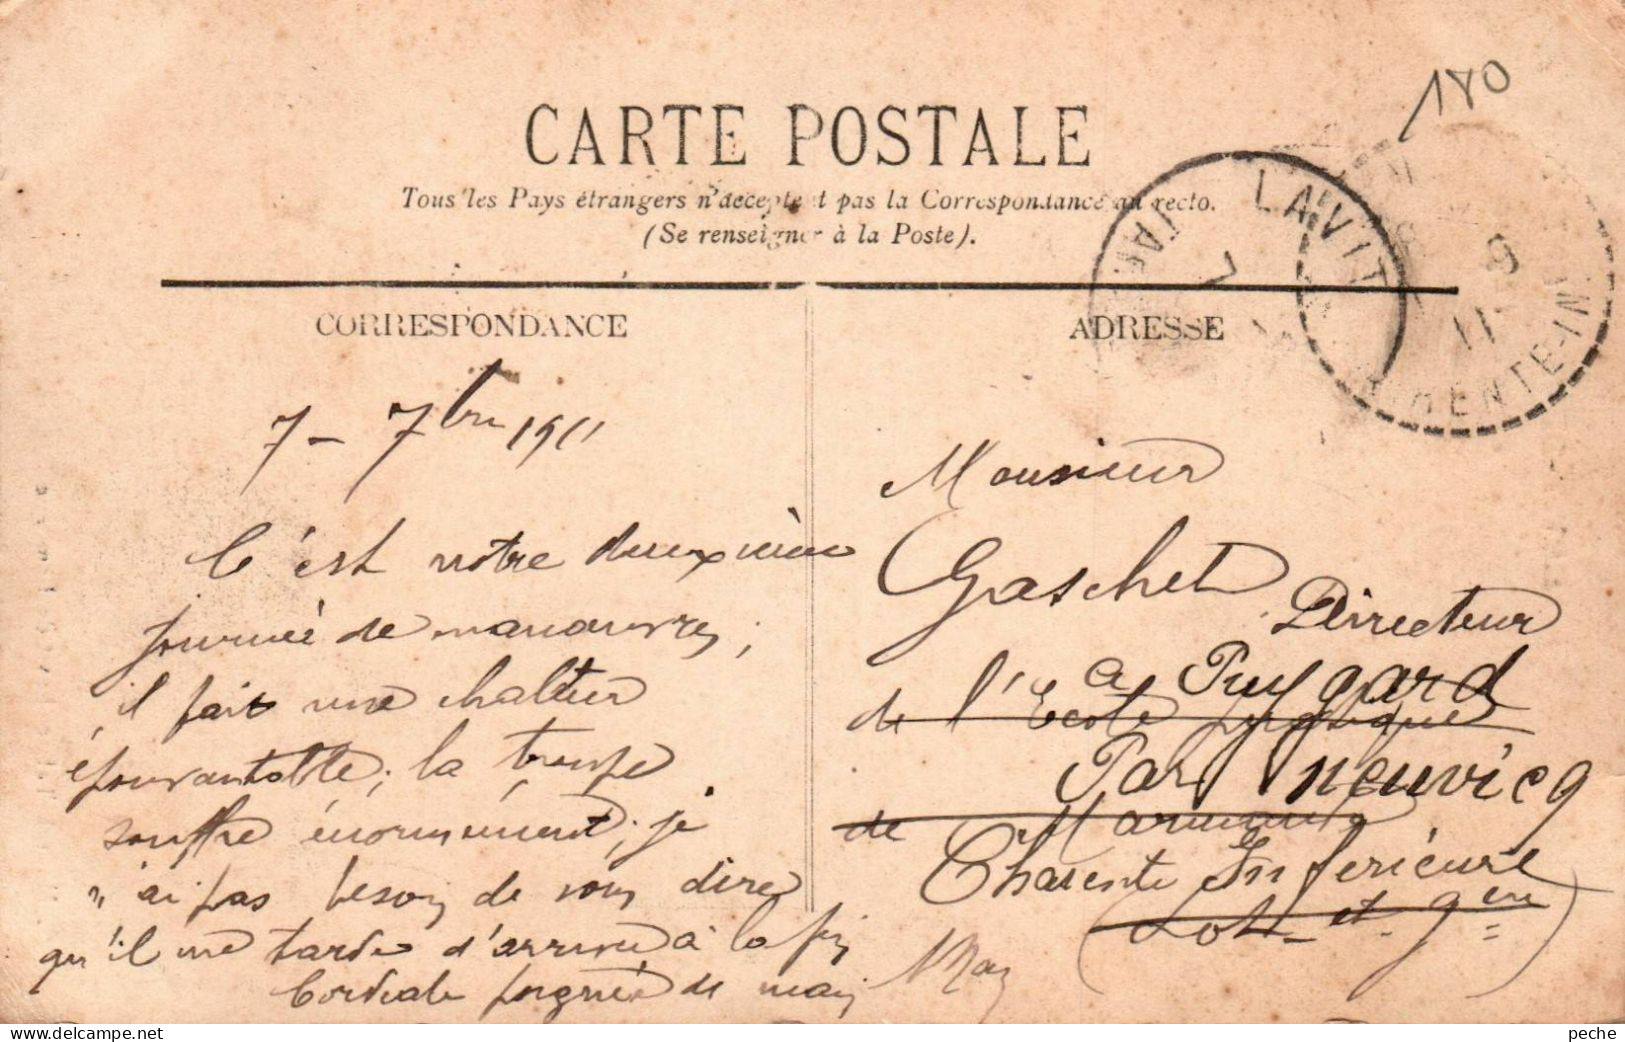 180
CARTE POSTALE
Tous les Pays étrangers n'acceptent pas la Correspondance au recto.
(Se renseigner à la Poste).
LAVIT
7
9
11
CHARENTE-INF
CORRESPONDANCE
ADRESSE
7 - 7bre 1911
C'est notre deuxième
journée de manœuvres ;
il fait une chaleur
épouvantable ; la troupe
souffre énormément ; je
n'ai pas besoin de vous dire
qu'il me tarde d'arriver à la fin
Cordiale poignée de main
Monsieur
Gaschet
Directeur
à Puygard
de l'Ecole
Par Neuvicq
de Marmande
Charente Inferieure
(Lot-et-Gne)
peche